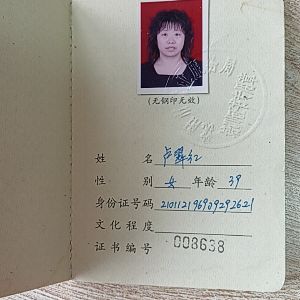 (无钢印无效)
姓 名 卢 红
性 别 女 年龄 39
身份证号码 210112196909292621
文化程度
证书编号 008638